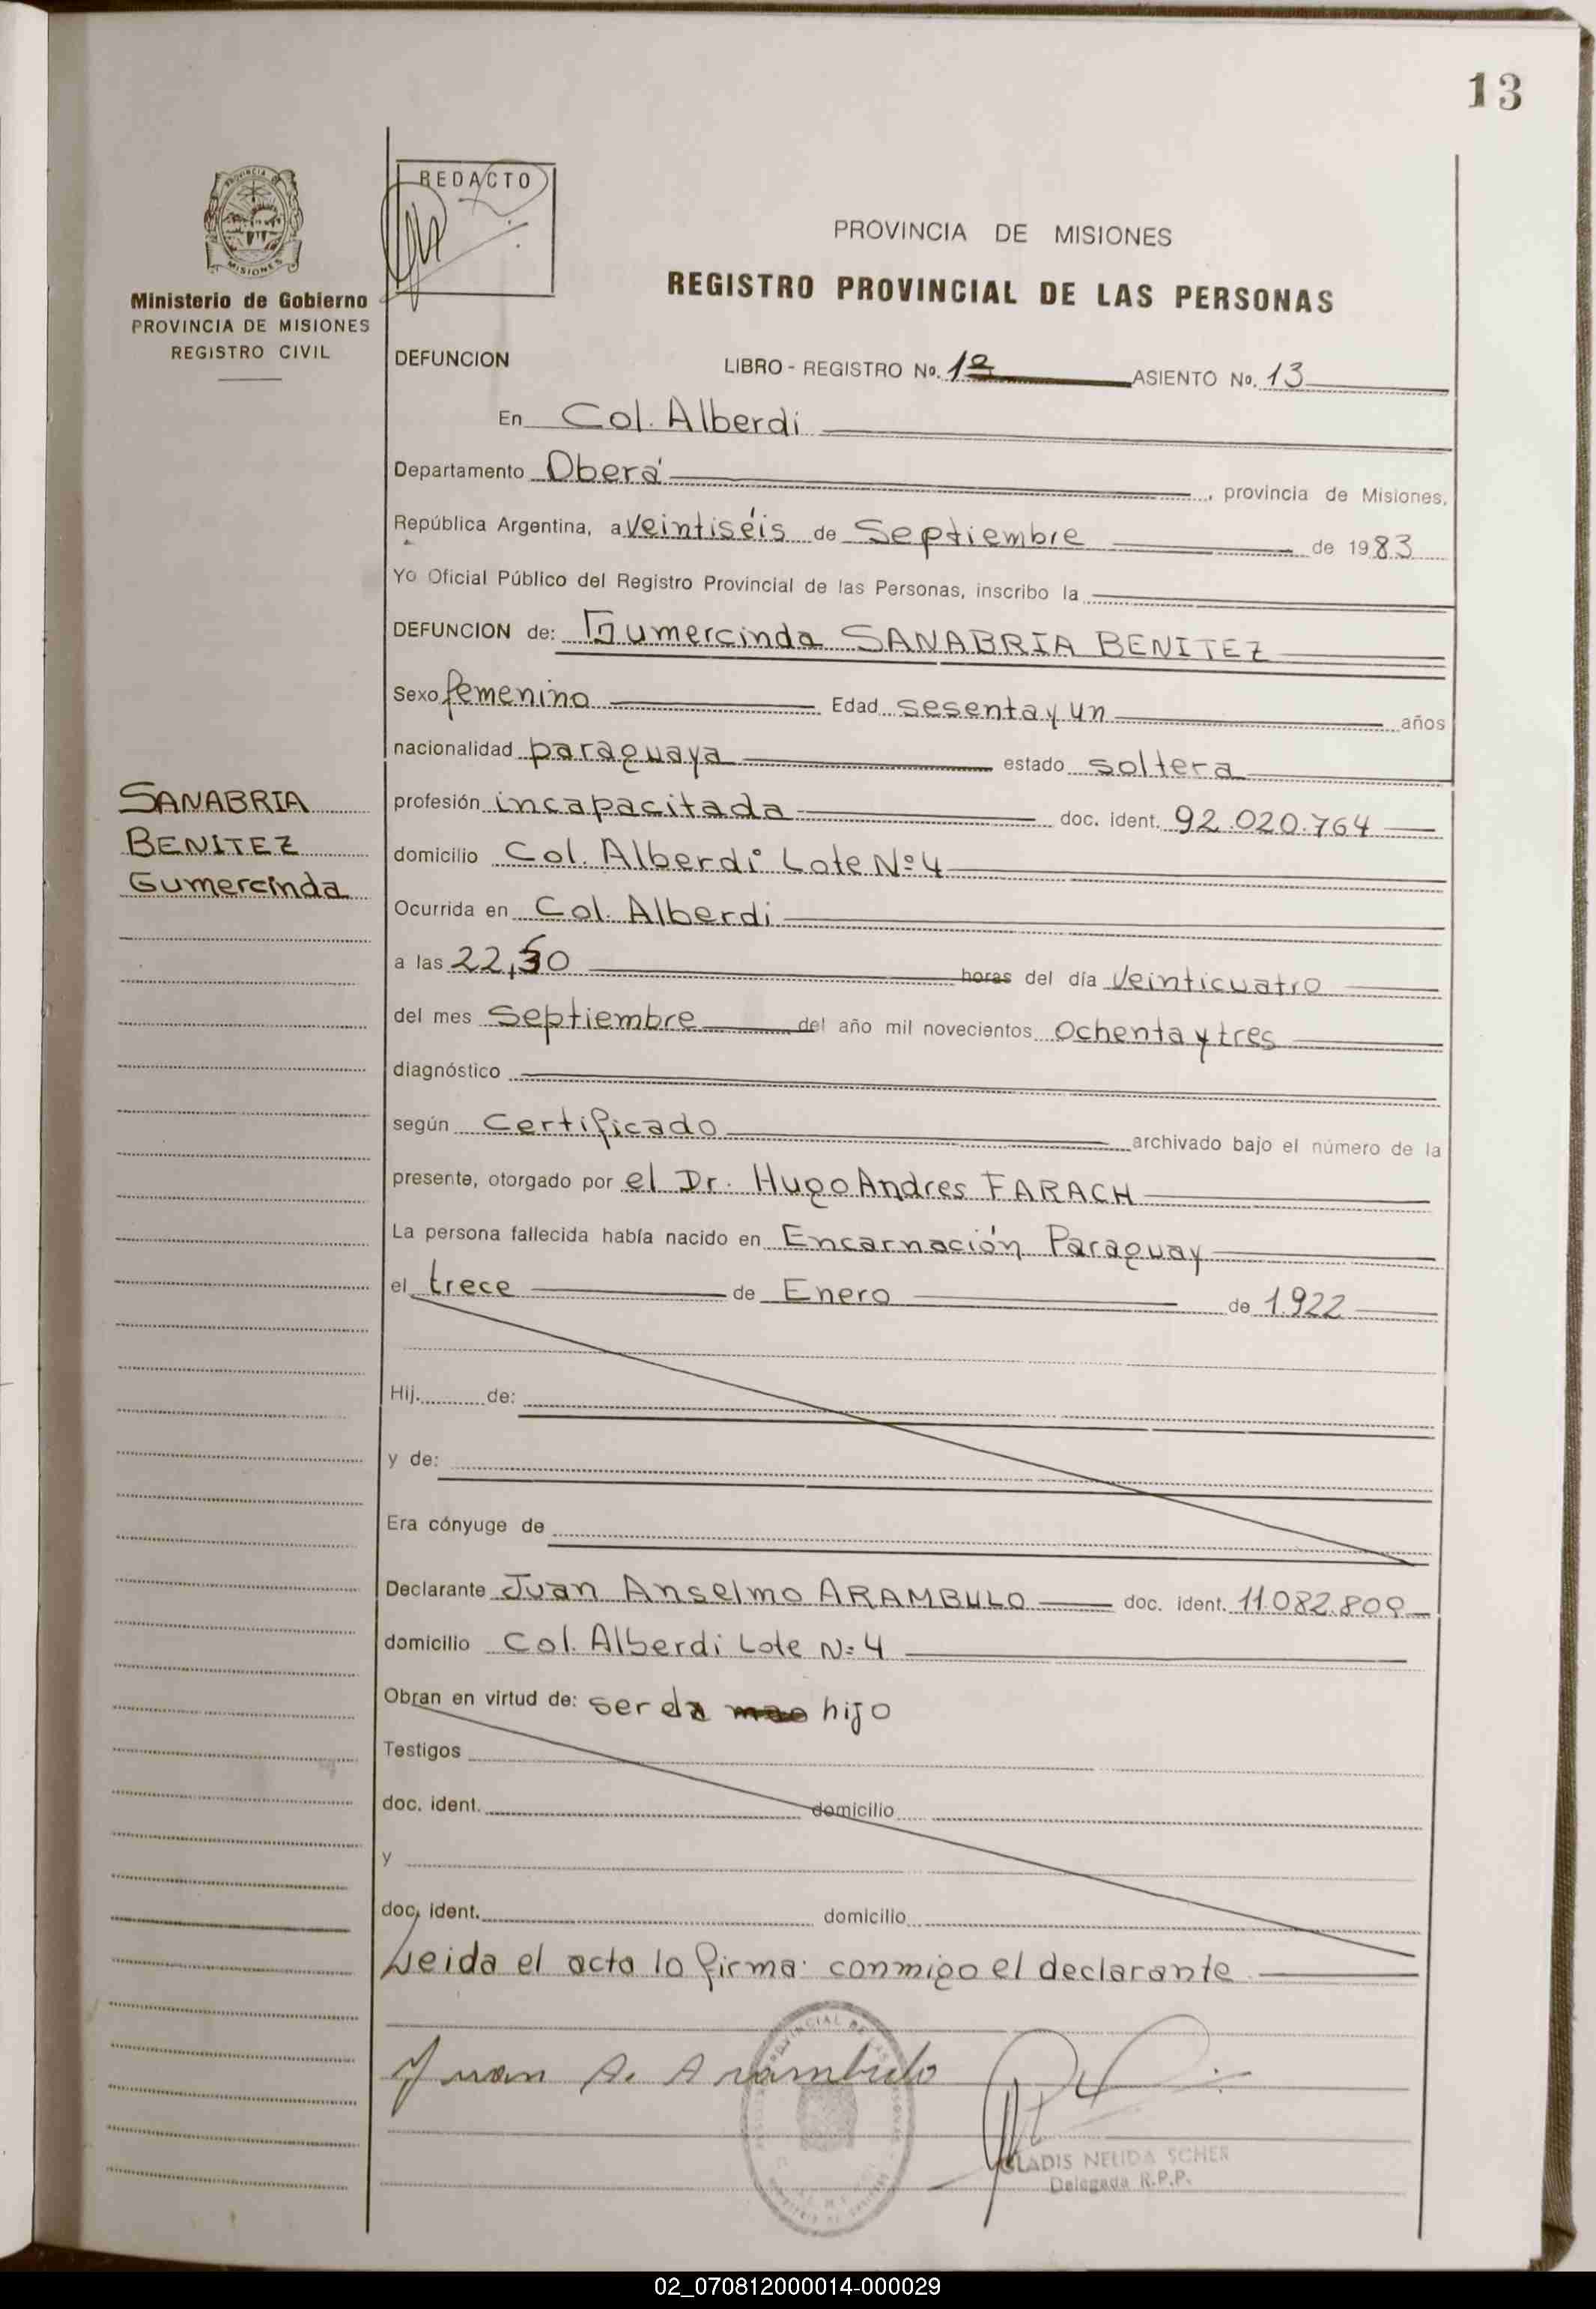 13
PROVINCIA DE
MISIONES
Ministerio de Gobierno
PROVINCIA DE MISIONES
REGISTRO CIVIL
REDACTO
PROVINCIA DE MISIONES
REGISTRO PROVINCIAL DE LAS PERSONAS
DEFUNCION LIBRO - REGISTRO No. ASIENTO No. 13
En Col. Alberdi
Departamento Oberá, provincia de Misiones,
República Argentina, a veintiséis de Septiembre de 1983
Yo Oficial Público del Registro Provincial de las Personas, inscribo la
DEFUNCION de: Gumercinda SANABRIA BENITEZ
Sexo femenino Edad sesenta y un años
nacionalidad paraguaya estado soltera
SANABRIA
BENITEZ
Gumercinda
profesión incapacitada doc. ident. 92.020.764
domicilio Col. Alberdi Lote Nº 4
Ocurrida en Col. Alberdi
a las 22,30 horas del día Veinticuatro
del mes Septiembre del año mil novecientos ochenta y tres
diagnóstico
según Certificado archivado bajo el número de la
presente, otorgado por el Dr. Hugo Andres FARACH
La persona fallecida había nacido en Encarnación Paraguay
el trece de Enero de 1.922
Hij. de:
y de:
Era cónyuge de
Declarante Juan Anselmo ARAMBULO doc. ident. 11.082.809
domicilio Col. Alberdi Lote N= 4
Obran en virtud de: ser da hijo
Testigos
doc. ident. domicilio
y
doc. ident. domicilio
Leida el acta lo firma conmigo el declarante
Juan A. Arambulo
GLADIS NELIDA SCHER
Delegada R.P.P.
02_070812000014-000029